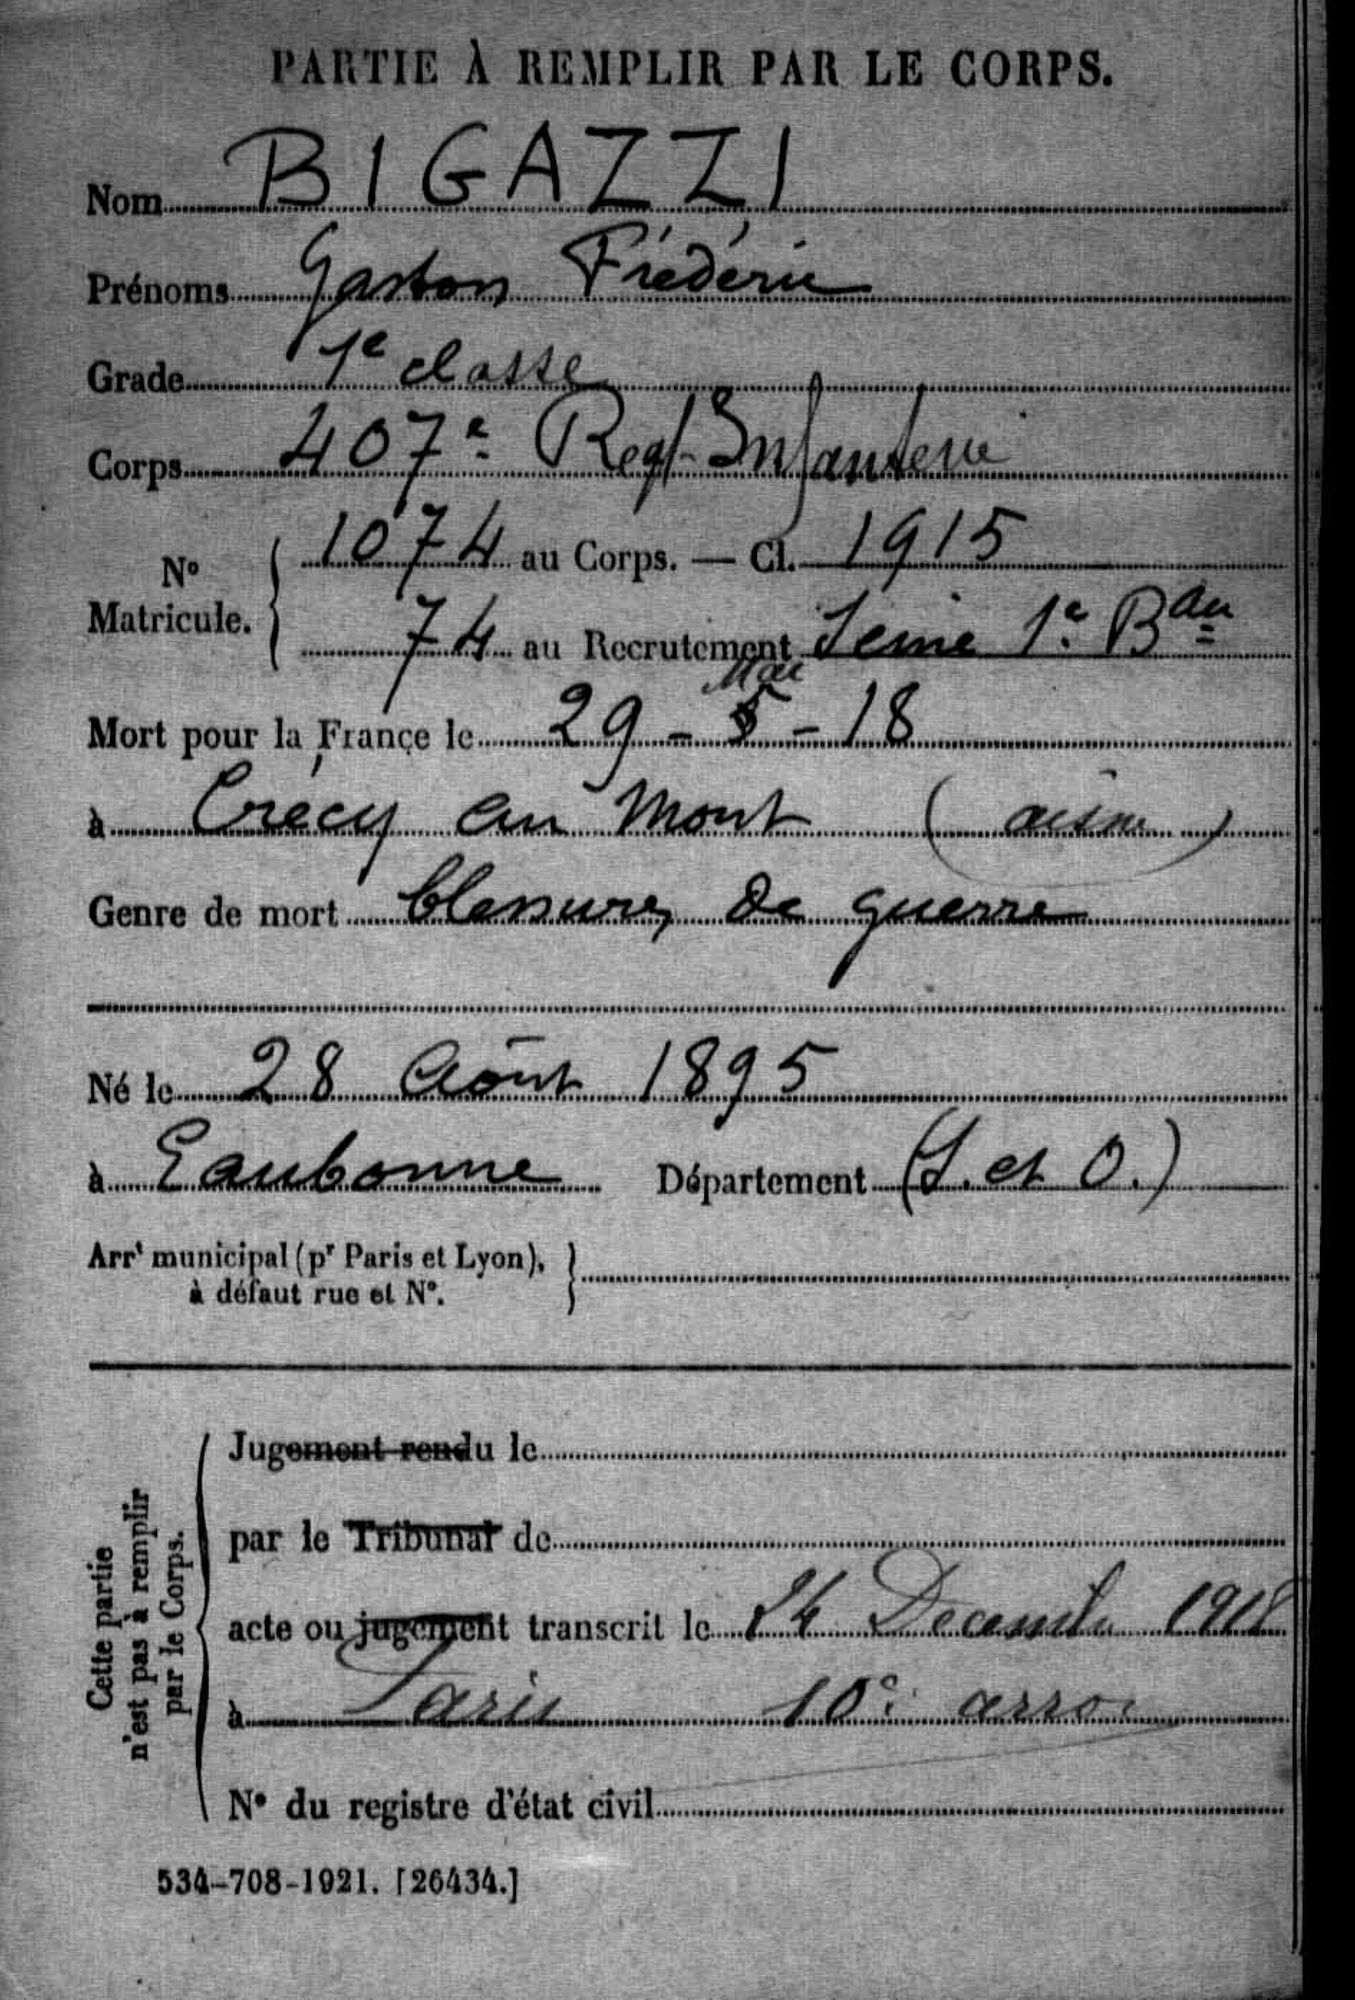 PARTIE À REMPLIR PAR LE CORPS.
Nom BIGAZZI
Prénoms Gaston Frédéric
Grade 1e classe
Corps 407e Regt Infanterie
N° Matricule. 1074 au Corps. — Cl. 1915
74 au Recrutement Seine 1e Bau
Mai
Mort pour la France le 29 - 5 - 18
à Crécy au Mont (aisne)
Genre de mort blessures de guerre
Né le 28 Août 1895
à Eaubonne Département (S. et O.)
Arrt municipal (pr Paris et Lyon),
à défaut rue et N°.
Cette partie
n'est pas à remplir
par le Corps.
Jugement rendu le
par le Tribunal de
acte ou jugement transcrit le 24 Decembre 1918
à Paris 10e arro
N° du registre d'état civil
534-708-1921. [26434.]